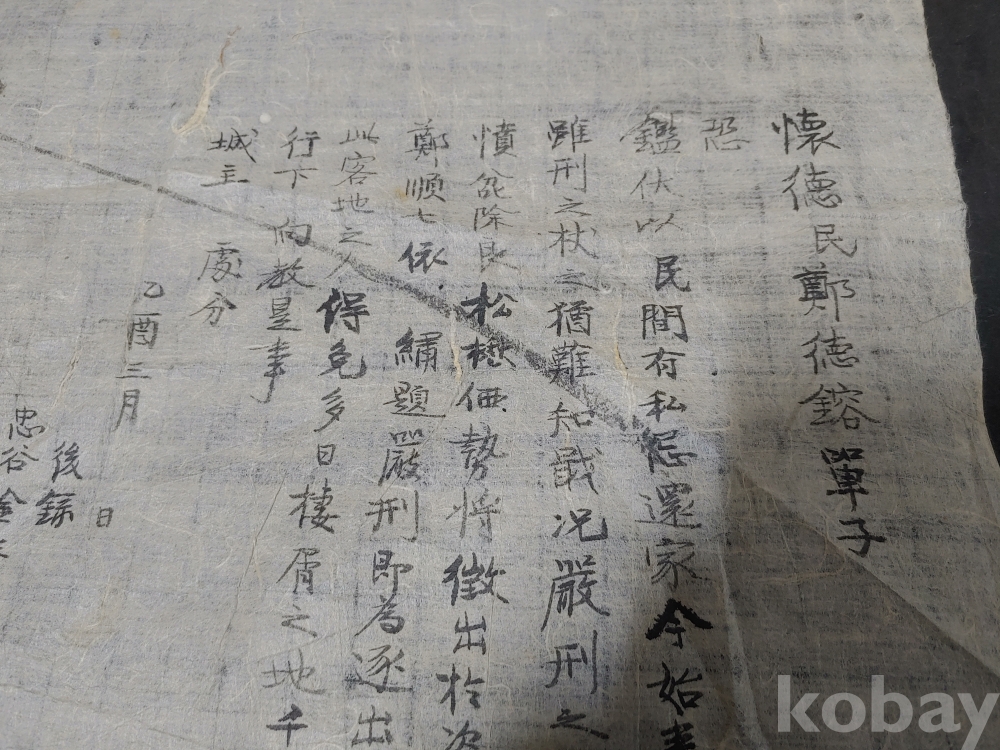 懐徳民鄭徳鎔單子
恐
鑑伏以民間有私㤪還家今始
雖刑之杖之猶難知戢況嚴刑之
憤忿除良松楸価勢將徵出於次
鄭順七依繡題嚴刑即為逐出
此客地之人得免多日棲屑之地千
行下向教是事
城主處分
乙酉三月日
後錄
忠谷金
kobay